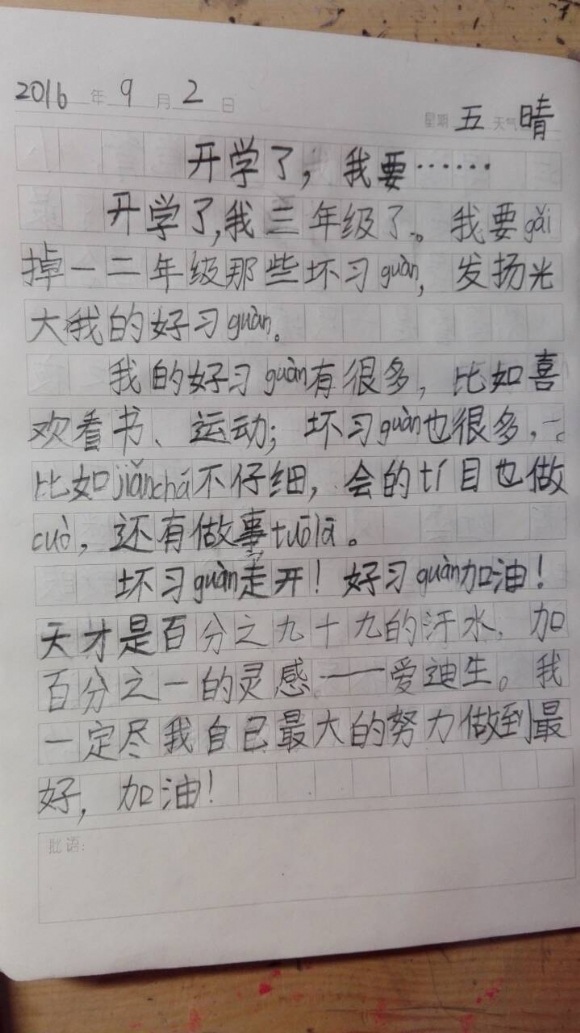 2016年9月2日
星期五 天气晴
开学了，我要……
开学了,我三年级了。我要gǎi
掉一二年级那些坏习guàn，发扬光
大我的好习guàn。
我的好习guàn有很多，比如喜
欢看书、运动；坏习guàn也很多，
比如jiǎnchá不仔细，会的tí目也做
cuò，还有做事tuōlā。
坏习guàn走开！好习guàn加油！
天才是百分之九十九的汗水，加
百分之一的灵感——爱迪生。我
一定尽我自己最大的努力做到最
好，加油！
批语：